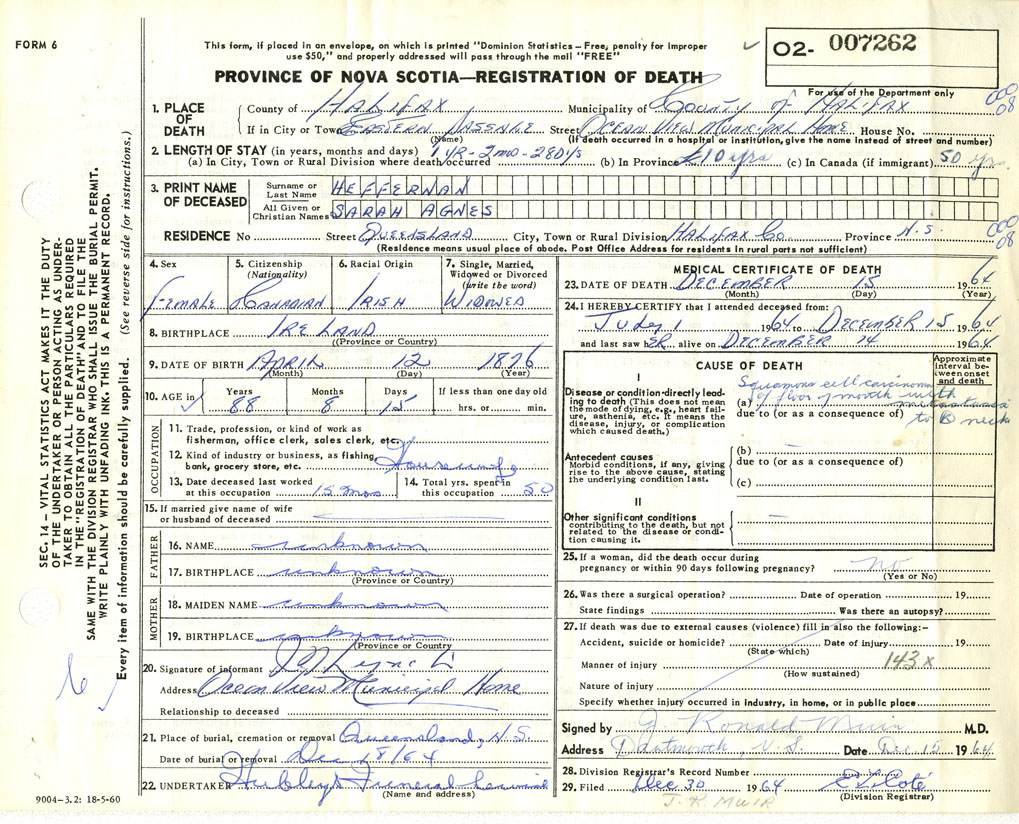 FORM 6
This form, if placed in an envelope, on which is printed "Dominion Statistics – Free, penalty for improper
use $50," and properly addressed will pass through the mail "FREE"
O2- 007262
PROVINCE OF NOVA SCOTIA—REGISTRATION OF DEATH
For use of the Department only
1. PLACE OF DEATH
County of HALIFAX Municipality of COUNTY of HALIFAX
000 08
If in City or Town EASTERN PASSAGE Street OCEAN VIEW MUNICIPAL HOME House No.
(Name) (If death occurred in a hospital or institution, give the name instead of street and number)
2. LENGTH OF STAY (in years, months and days)
(a) In City, Town or Rural Division where death occurred 1 YR-2 mo-28 DYS (b) In Province 10 yrs (c) In Canada (if immigrant) 50 yrs
3. PRINT NAME OF DECEASED
Surname or Last Name HEFFERNAN
All Given or Christian Names SARAH AGNES
000 08
RESIDENCE No Street QUEENSLAND City, Town or Rural Division HALIFAX Co Province N.S.
(Residence means usual place of abode. Post Office Address for residents in rural parts not sufficient)
4. Sex FEMALE
5. Citizenship (Nationality) CANADIAN
6. Racial Origin IRISH
7. Single, Married, Widowed or Divorced (write the word) WIDOWED
8. BIRTHPLACE IRELAND
(Province or Country)
9. DATE OF BIRTH APRIL 12 1876
(Month) (Day) (Year)
10. AGE in Years 88 Months 8 Days 15 If less than one day old hrs. or min.
OCCUPATION
11. Trade, profession, or kind of work as
fisherman, office clerk, sales clerk, etc.
12. Kind of industry or business, as fishing,
bank, grocery store, etc. Housewife
13. Date deceased last worked
at this occupation 15 mos
14. Total yrs. spent in
this occupation 50
15. If married give name of wife
or husband of deceased
FATHER
16. NAME unknown
17. BIRTHPLACE unknown
(Province or Country)
MOTHER
18. MAIDEN NAME unknown
19. BIRTHPLACE unknown
(Province or Country)
20. Signature of informant Lynch
Address Ocean View Municipal Home
Relationship to deceased
21. Place of burial, cremation or removal Queensland, N.S.
Date of burial or removal Dec 18/64
22. UNDERTAKER Hubley's Funeral Service
(Name and address)
MEDICAL CERTIFICATE OF DEATH
23. DATE OF DEATH DECEMBER 15 1964
(Month) (Day) (Year)
24. I HEREBY CERTIFY that I attended deceased from:
July 1 1964 to DECEMBER 15 1964
and last saw hER alive on DECEMBER 14 1964
CAUSE OF DEATH
Approximate interval between onset and death
I
Disease or condition directly leading to death (This does not mean the mode of dying, e.g., heart failure, asthenia, etc. It means the disease, injury, or complication which caused death.)
(a) Squamous cell carcinoma
of floor of mouth with
metastases
to B neck
due to (or as a consequence of)
Antecedent causes
Morbid conditions, if any, giving rise to the above cause, stating the underlying condition last.
(b)
due to (or as a consequence of)
(c)
II
Other significant conditions
contributing to the death, but not related to the disease or condition causing it.
25. If a woman, did the death occur during
pregnancy or within 90 days following pregnancy? no
(Yes or No)
26. Was there a surgical operation? Date of operation 19
State findings Was there an autopsy?
27. If death was due to external causes (violence) fill in also the following:–
Accident, suicide or homicide? Date of injury 19
(State which)
Manner of injury 143x
(How sustained)
Nature of injury
Specify whether injury occurred in Industry, in home, or in public place
Signed by J. Ronald Muir M.D.
Address Dartmouth, N.S. Date Dec 15 1964
28. Division Registrar's Record Number
29. Filed Dec 30 1964
(Division Registrar)
J. R. MUIR
9004–3.2: 18-5-60
SEC. 14 – VITAL STATISTICS ACT MAKES IT THE DUTY
OF THE UNDERTAKER OR PERSON ACTING AS UNDER-
TAKER TO OBTAIN ALL THE PARTICULARS REQUIRED
IN THE "REGISTRATION OF DEATH" AND TO FILE THE
SAME WITH THE DIVISION REGISTRAR WHO SHALL ISSUE THE BURIAL PERMIT.
WRITE PLAINLY WITH UNFADING INK. THIS IS A PERMANENT RECORD.
Every item of information should be carefully supplied. (See reverse side for instructions.)